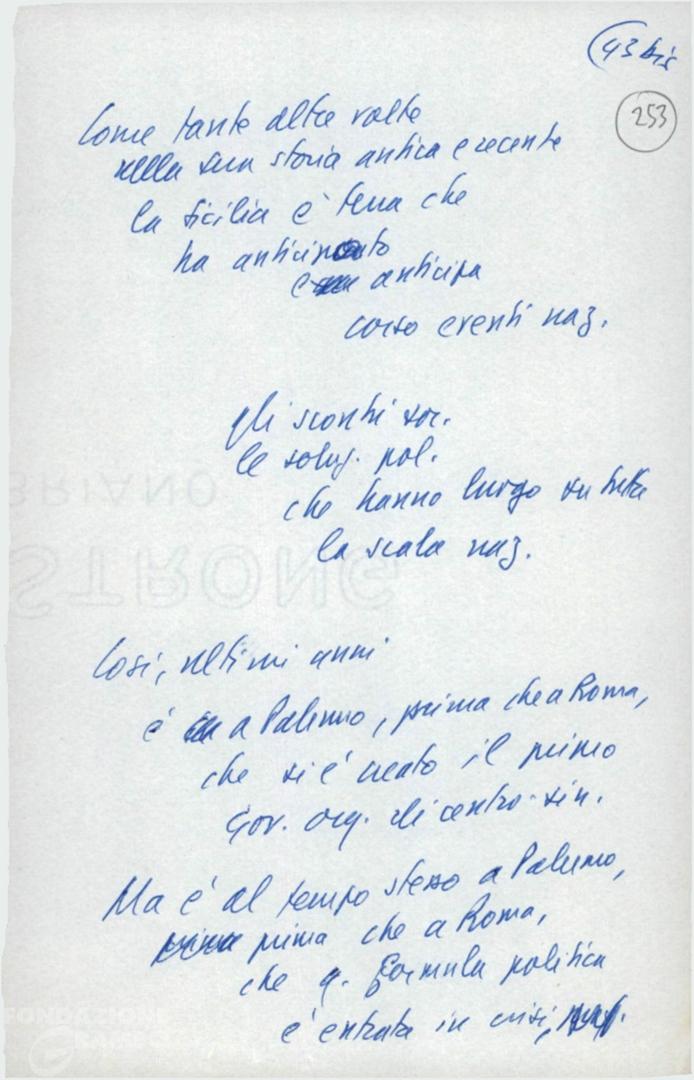 43 bis
253
Come tante altre volte
nella sua storia antica e recente
la Sicilia è terra che
ha anticipato
e anticipa
corso eventi naz.
gli scontri soc.
le soluz. pol.
che hanno luogo su tutta
la scala naz.
BRIANO
STRONG
Così, ultimi anni
è a Palermo, prima che a Roma,
che si è creato il primo
Gov. org. di centro-sin.
Ma è al tempo stesso a Palermo,
prima che a Roma,
che q. formula politica
è entrata in crisi,
FONDAZIONE